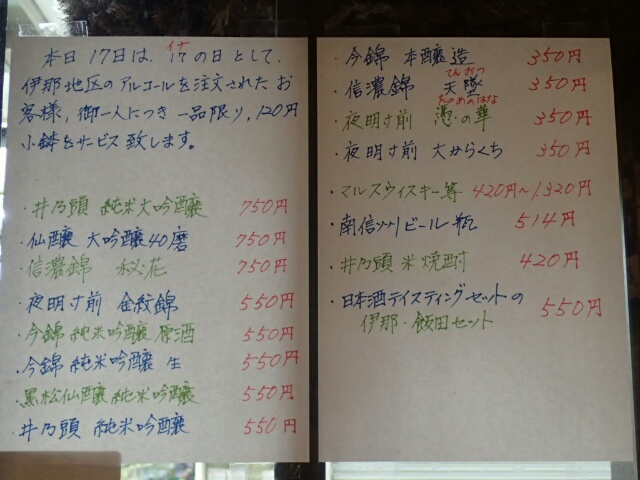 本日17日は、17の日として、
イナ
伊那地区のアルコールを注文されたお
客様、御一人につき一品限り、120円
小鉢をサービス致します。
・井乃頭 純米大吟醸 750円
・仙醸 大吟醸40磨 750円
・信濃錦 秘花 750円
・夜明け前 金紋錦 550円
・今錦 純米吟醸 原酒 550円
・今錦 純米吟醸 生 550円
・黒松仙醸 純米吟醸 550円
・井乃頭 純米吟醸 550円
・今錦 本醸造 350円
てんおつ
・信濃錦 天墜 350円
たのめのはな
・夜明け前 憑の華 350円
・夜明け前 大からくち 350円
・マルスウィスキー等 420円~1,320円
・南信州ビール瓶 514円
・井乃頭 米焼酎 420円
・日本酒テイスティングセットの 550円
伊那・飯田セット